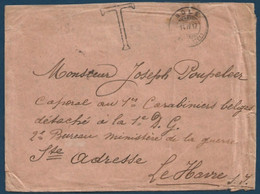 T
Monsieur Joseph Poupeleer
Caporal au 1er Carabiniers belges
détaché à la 1e D. G.
2e Bureau ministère de la guerre
Ste Adresse
Le Havre
S. I.